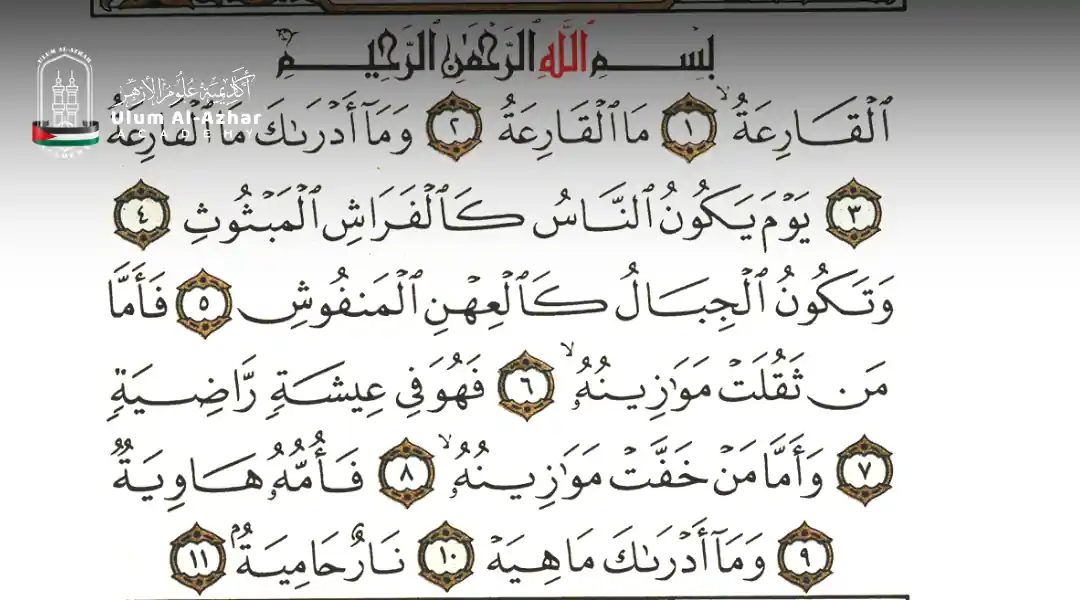 بِسْمِ ٱللَّهِ ٱلرَّحْمَٰنِ ٱلرَّحِيمِ
أكاديمية علوم الأزهر
ULUM AL-AZHAR
Ulum Al-Azhar
ACADEMY
ٱلْقَارِعَةُ ١ مَا ٱلْقَارِعَةُ ٢ وَمَآ أَدْرَىٰكَ مَا ٱلْقَارِعَةُ
٣ يَوْمَ يَكُونُ ٱلنَّاسُ كَٱلْفَرَاشِ ٱلْمَبْثُوثِ ٤
وَتَكُونُ ٱلْجِبَالُ كَٱلْعِهْنِ ٱلْمَنفُوشِ ٥ فَأَمَّا
مَن ثَقُلَتْ مَوَٰزِينُهُۥ ٦ فَهُوَ فِى عِيشَةٍ رَّاضِيَةٍ
٧ وَأَمَّا مَنْ خَفَّتْ مَوَٰزِينُهُۥ ٨ فَأُمُّهُۥ هَاوِيَةٌ
٩ وَمَآ أَدْرَىٰكَ مَا هِيَهْ ١٠ نَارٌ حَامِيَةٌۢ ١١